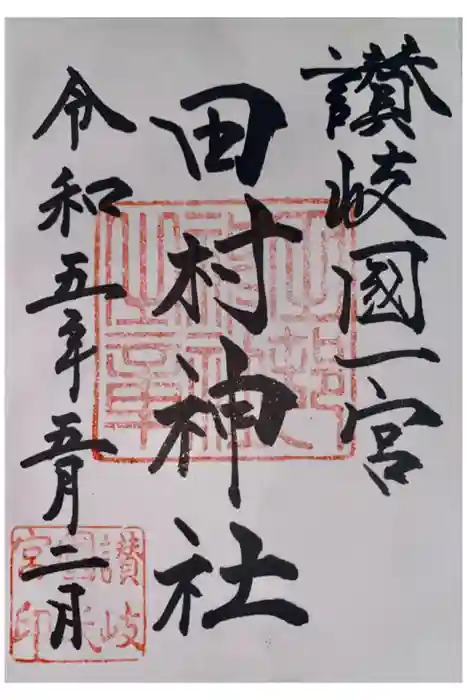 讃岐國一宮
田村神社
令和五年五月二日
讃岐
宮印